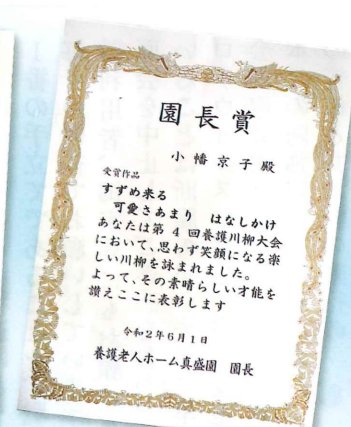 園長賞
小幡京子殿
受賞作品
すずめ来る
可愛さあまり はなしかけ
あなたは第4回養護川柳大会
において、思わず笑顔になる楽
しい川柳を詠まれました。
よって、その素晴らしい才能を
讃えここに表彰します
令和2年6月1日
養護老人ホーム真盛園 園長